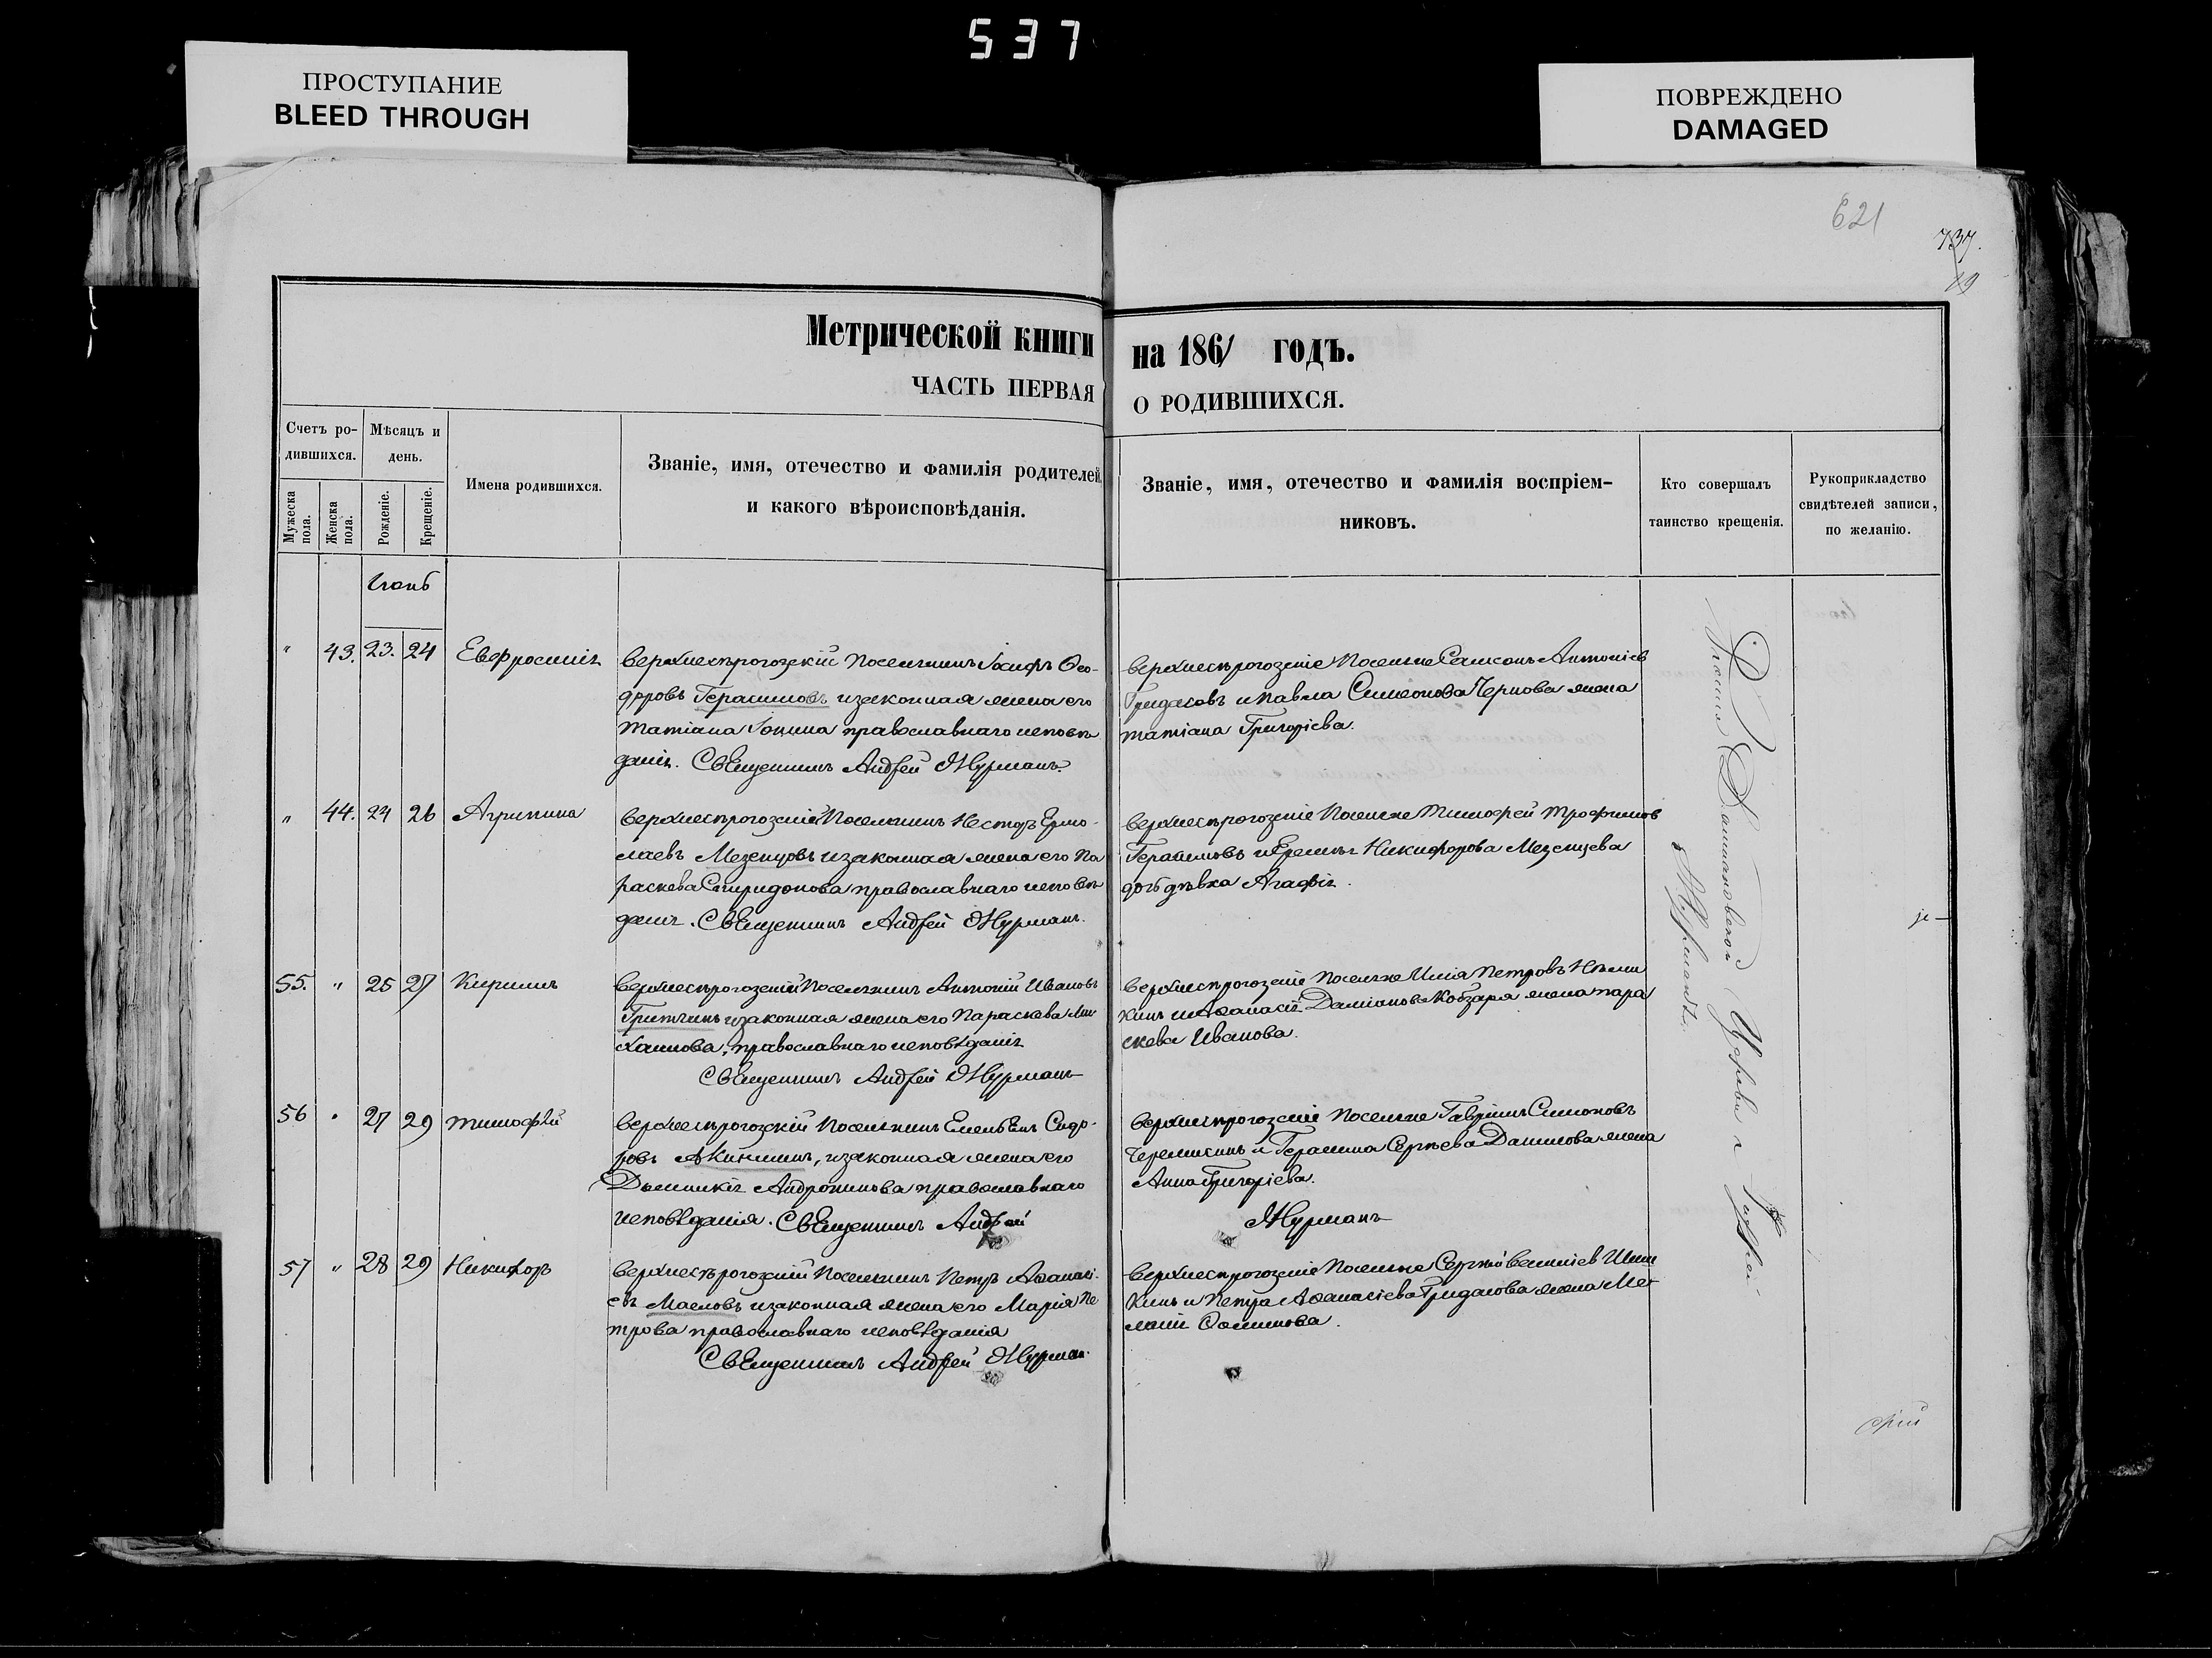 537
ПРОСТУПАНИЕ
BLEED THROUGH
ПОВРЕЖДЕНО
DAMAGED
621
737.
19
Метрической книги на 1861 годъ.
ЧАСТЬ ПЕРВАЯ О РОДИВШИХСЯ.
Счетъ родившихся.
Мужеска пола.
Женска пола.
Мѣсяцъ и день.
Рожденіе.
Крещеніе.
Имена родившихся.
Званіе, имя, отечество и фамилія родителей,
и какого вѣроисповѣданія.
Званіе, имя, отечество и фамилія воспріем-
никовъ.
Кто совершалъ
таинство крещенія.
Рукоприкладство
свидѣтелей записи,
по желанію.
Іюнь
" 43. 23. 24 Евфросинія
Верхнесѣрогозскій Поселянинъ Іосифъ Ѳео-
доровъ Герасимовъ и законная жена его
Татіана Іонина православнаго исповѣ
данія. Священникъ Андрей Журманъ.
Верхнесѣрогозскіе Поселяне Самсонъ Антоніев
Гридасовъ и Павла Симеонова Чернова жена
Татіана Григоріева.
" 44. 24 26 Агрипина
Верхнесѣрогозскій Поселянинъ Несторъ Ермо-
лаевъ Мезенцовъ и законная жена его Па
раскева Спиридонова православнаго исповѣ
данія. Священникъ Андрей Журманъ.
Верхнесѣрогозскіе Поселяне Тимофей Трофимов
Герасимовъ и Еремія Никифорова Мезенцева
дочь дѣвка Агафія.
55. " 25 27 Кирилъ
Верхнесѣрогозскій Поселянинъ Антоній Ивановъ
законная жена его Параскева Ми
хаилова, православнаго исповѣданія
Священникъ Андрей Журманъ
Верхнесѣрогозскіе Поселяне Илія Петровъ
и Аѳанасія Даміанова Кобзаря жена Пара
скева Иванова.
56 " 27 29 Тимофей
Верхнесѣрогозскій Поселянинъ Емельянъ Сидо-
ровъ Акининъ, и законная жена его
Домникія Андроникова православнаго
исповѣданія. Священникъ Андрей
Верхнесѣрогозскіе Поселяне Гавріилъ Симоновъ
Черемисинъ и Герасима Сергѣева Данилова жена
Анна Григоріева.
Журманъ
57 " 28 29 Никифоръ
Верхнесѣрогозскій Поселянинъ Петръ Аѳанасі-
евъ Масловъ и законная жена его Марія Пе
трова православнаго исповѣданія
Священникъ Андрей Журман
Верхнесѣрогозскіе Поселяне Сергѣй
и Петра Аѳанасіева Гридасова жена Ме
ланія
Церкви